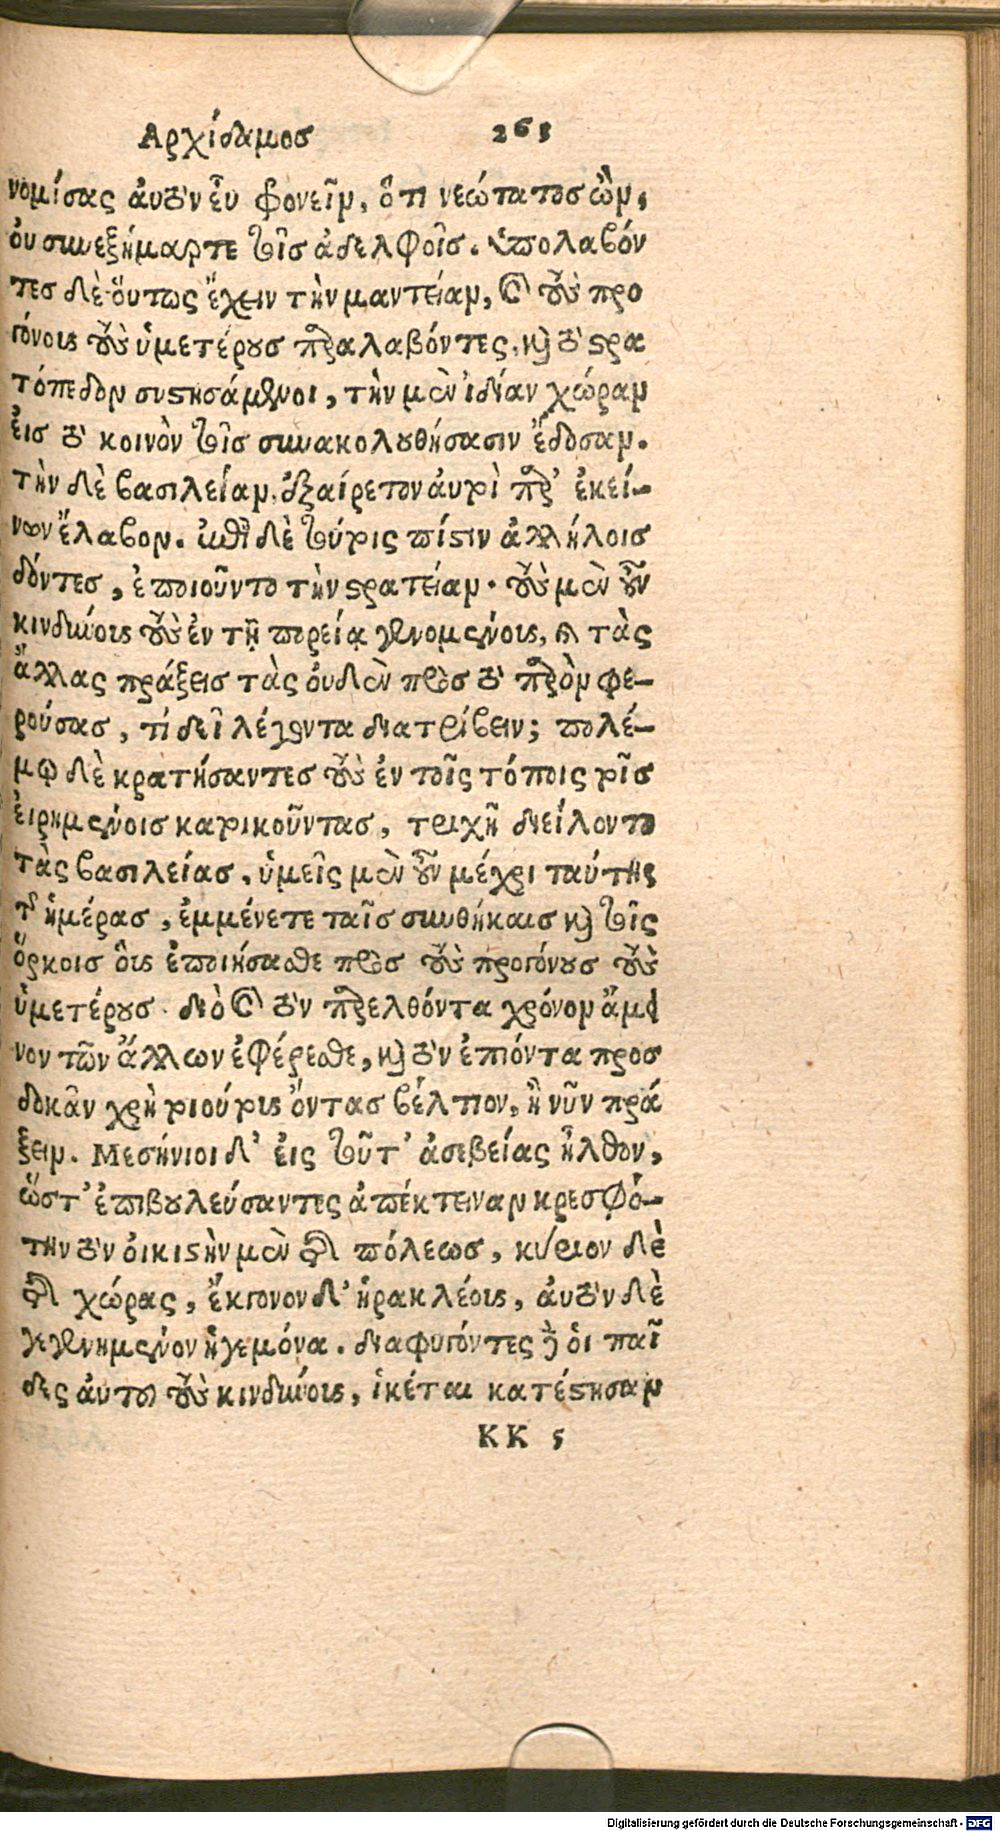 Αρχίδαμοσ 261
νομίσας ἀυτὸν ἐυ φρονεῖν, ὅτι νεώτατοσ ὢν,
ὀυ συνεξήμαρτε τοῖσ ἀδελφοῖσ. ὑπολαβόν
τεσ δὲ ὅυτως ἔχειν τὴν μαντείαν, καὶ τοὺσ προ
γόνους τοὺσ ὑμετέρουσ παραλαβόντες, καὶ τὸ στρα
τόπεδον συστησάμενοι, τὴν μὲν ἰδίαν χώραν
ἐισ τὸ κοινὸν τοῖσ συνακολουθήσασιν ἔδοσαν.
τὴν δὲ βασιλείαν, ἐξαίρετον ἀυτοὶ παρ' ἐκεί-
νων ἔλαβον. ἐπὶ δὲ τούτοις πίστιν ἀλλήλοισ
δόντεσ, ἐποιοῦντο τὴν στρατείαν. τοὺσ μὲν οὖν
κινδύνους τοὺσ ἐν τῇ πορείᾳ γενομένους, καὶ τὰς
ἄλλας πράξεισ τὰς ὀυδὲν πρὸσ τὸ παρὸν φε-
ρούσασ, τί δεῖ λέγοντα διατρίβειν; πολέ-
μῳ δὲ κρατήσαντεσ τοὺσ ἐν τοῖς τόποις τοῖσ
ἐιρημένοισ κατοικοῦντασ, τριχῆ διείλοντο
τὰς βασιλείασ, ὑμεῖς μὲν οὖν μέχρι ταύτης
τῆσ ἡμέρασ, ἐμμένετε ταῖσ συνθήκαισ καὶ τοῖς
ὅρκοισ οἷς ἐποιήσασθε πρὸσ τοὺσ προγόνουσ τοὺσ
ὑμετέρουσ. διὸ καὶ τὸν παρελθόντα χρόνον ἄμει
νον τῶν ἄλλων ἐφέρεσθε, καὶ τὸν ἐπιόντα προσ
δοκᾶν χρὴ τοιούτους ὄντασ βέλτιον, ἢ νῦν πρά
ξειν. Μεσήνιοι δ' ἐις τοῦτ' ἀσεβείας ἦλθον,
ὥστ' ἐπιβουλεύσαντες ἀπέκτειναν κρεσφό-
την τὸν ὀικιστὴν μὲν τῆσ πόλεωσ, κύριον δὲ
τῆσ χώρας, ἔκγονον δ' ἡρακλέους, ἀυτὸν δὲ
γεγενημένον ἡγεμόνα. διαφυγόντες δὲ ὁι παῖ
δες ἀυτοῦ τοὺσ κινδύνους, ἱκέται κατέστησαν
ΚΚ 5
Digitalisierung gefördert durch die Deutsche Forschungsgemeinschaft - DFG